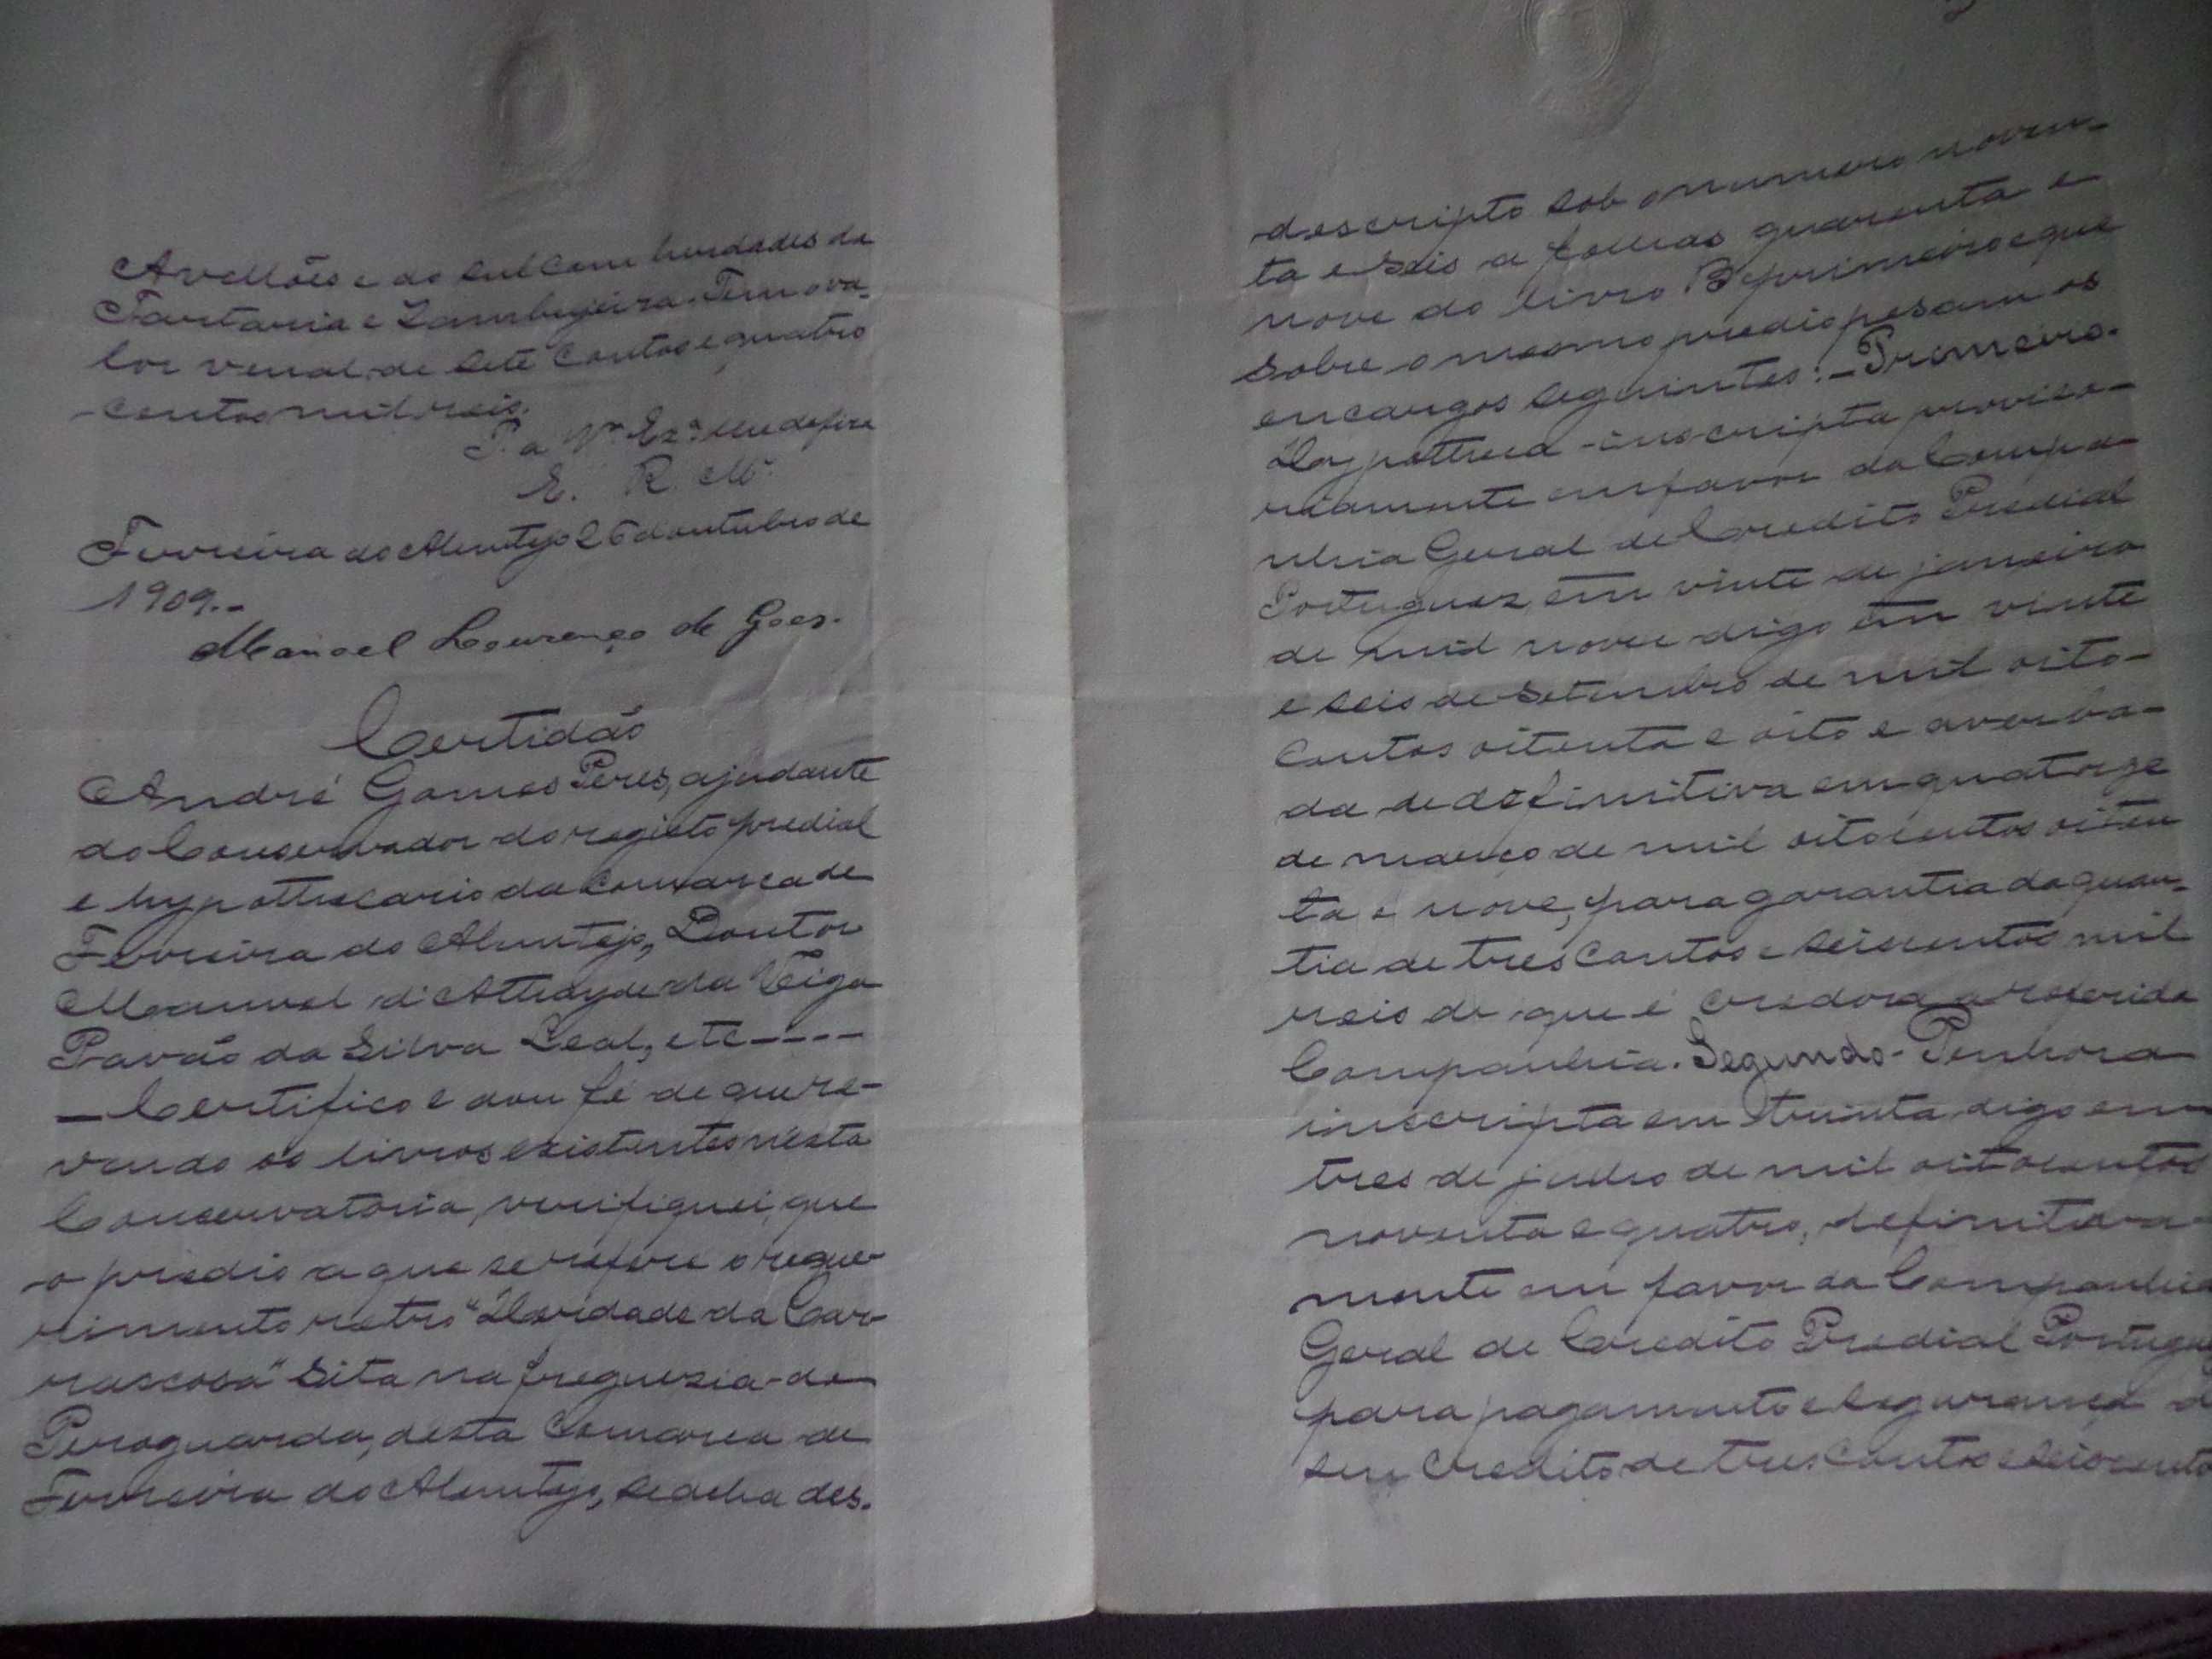 Avellões e do sul com herdades da
Tartaria e Zambujeira. Tem o va-
lor venal de sete contos e quatro
centos mil reis.
P. a V.ª Ex.ª lhe defira
E. R. M.
Ferreira do Alemtejo 26 d'outubro de
1909.-
Manoel Lourenço de Goes.
Certidão
André Gomes Peres, ajudante
do Conservador do registo predial
e hypothecario da Comarca de
Ferreira do Alemtejo, Doutor
Manuel d'Athayde da Veiga
Pavão da Silva Leal, etc----
— Certifico e dou fé de que re-
vendo os livros existentes n'esta
Conservatoria, verifiquei, que
o predio a que se refere o reque-
rimento retro "Herdade da Car-
rascosa" sita na freguezia de
Peroguarda, desta Comarca de
Ferreira do Alemtejo, se acha des-
descripto sob o numero noven-
ta e seis a folhas quarenta e
nove do livro B primeiro e que
sobre o mesmo predio pesam os
encargos seguintes: - Primeiro.
Hypotheca - inscripta proviso-
riamente em favor da Compa-
nhia Geral de Credito Predial
Portuguez, em vinte de janeiro
de mil nove digo em vinte
e seis de Setembro de mil oito-
centos oitenta e oito e averba-
da de definitiva em quatorze
de março de mil oitocentos oiten
ta e nove, para garantia da quan-
tia de tres contos e seiscentos mil
reis de que é credora a referida
Companhia. Segundo - Penhora
inscripta em trinta digo em
tres de julho de mil oitocentos
noventa e quatro, definitiva-
mente em favor da Companhia
Geral de Credito Predial Portugu
para pagamento e segurança d
seu credito de tres contos e seiscento